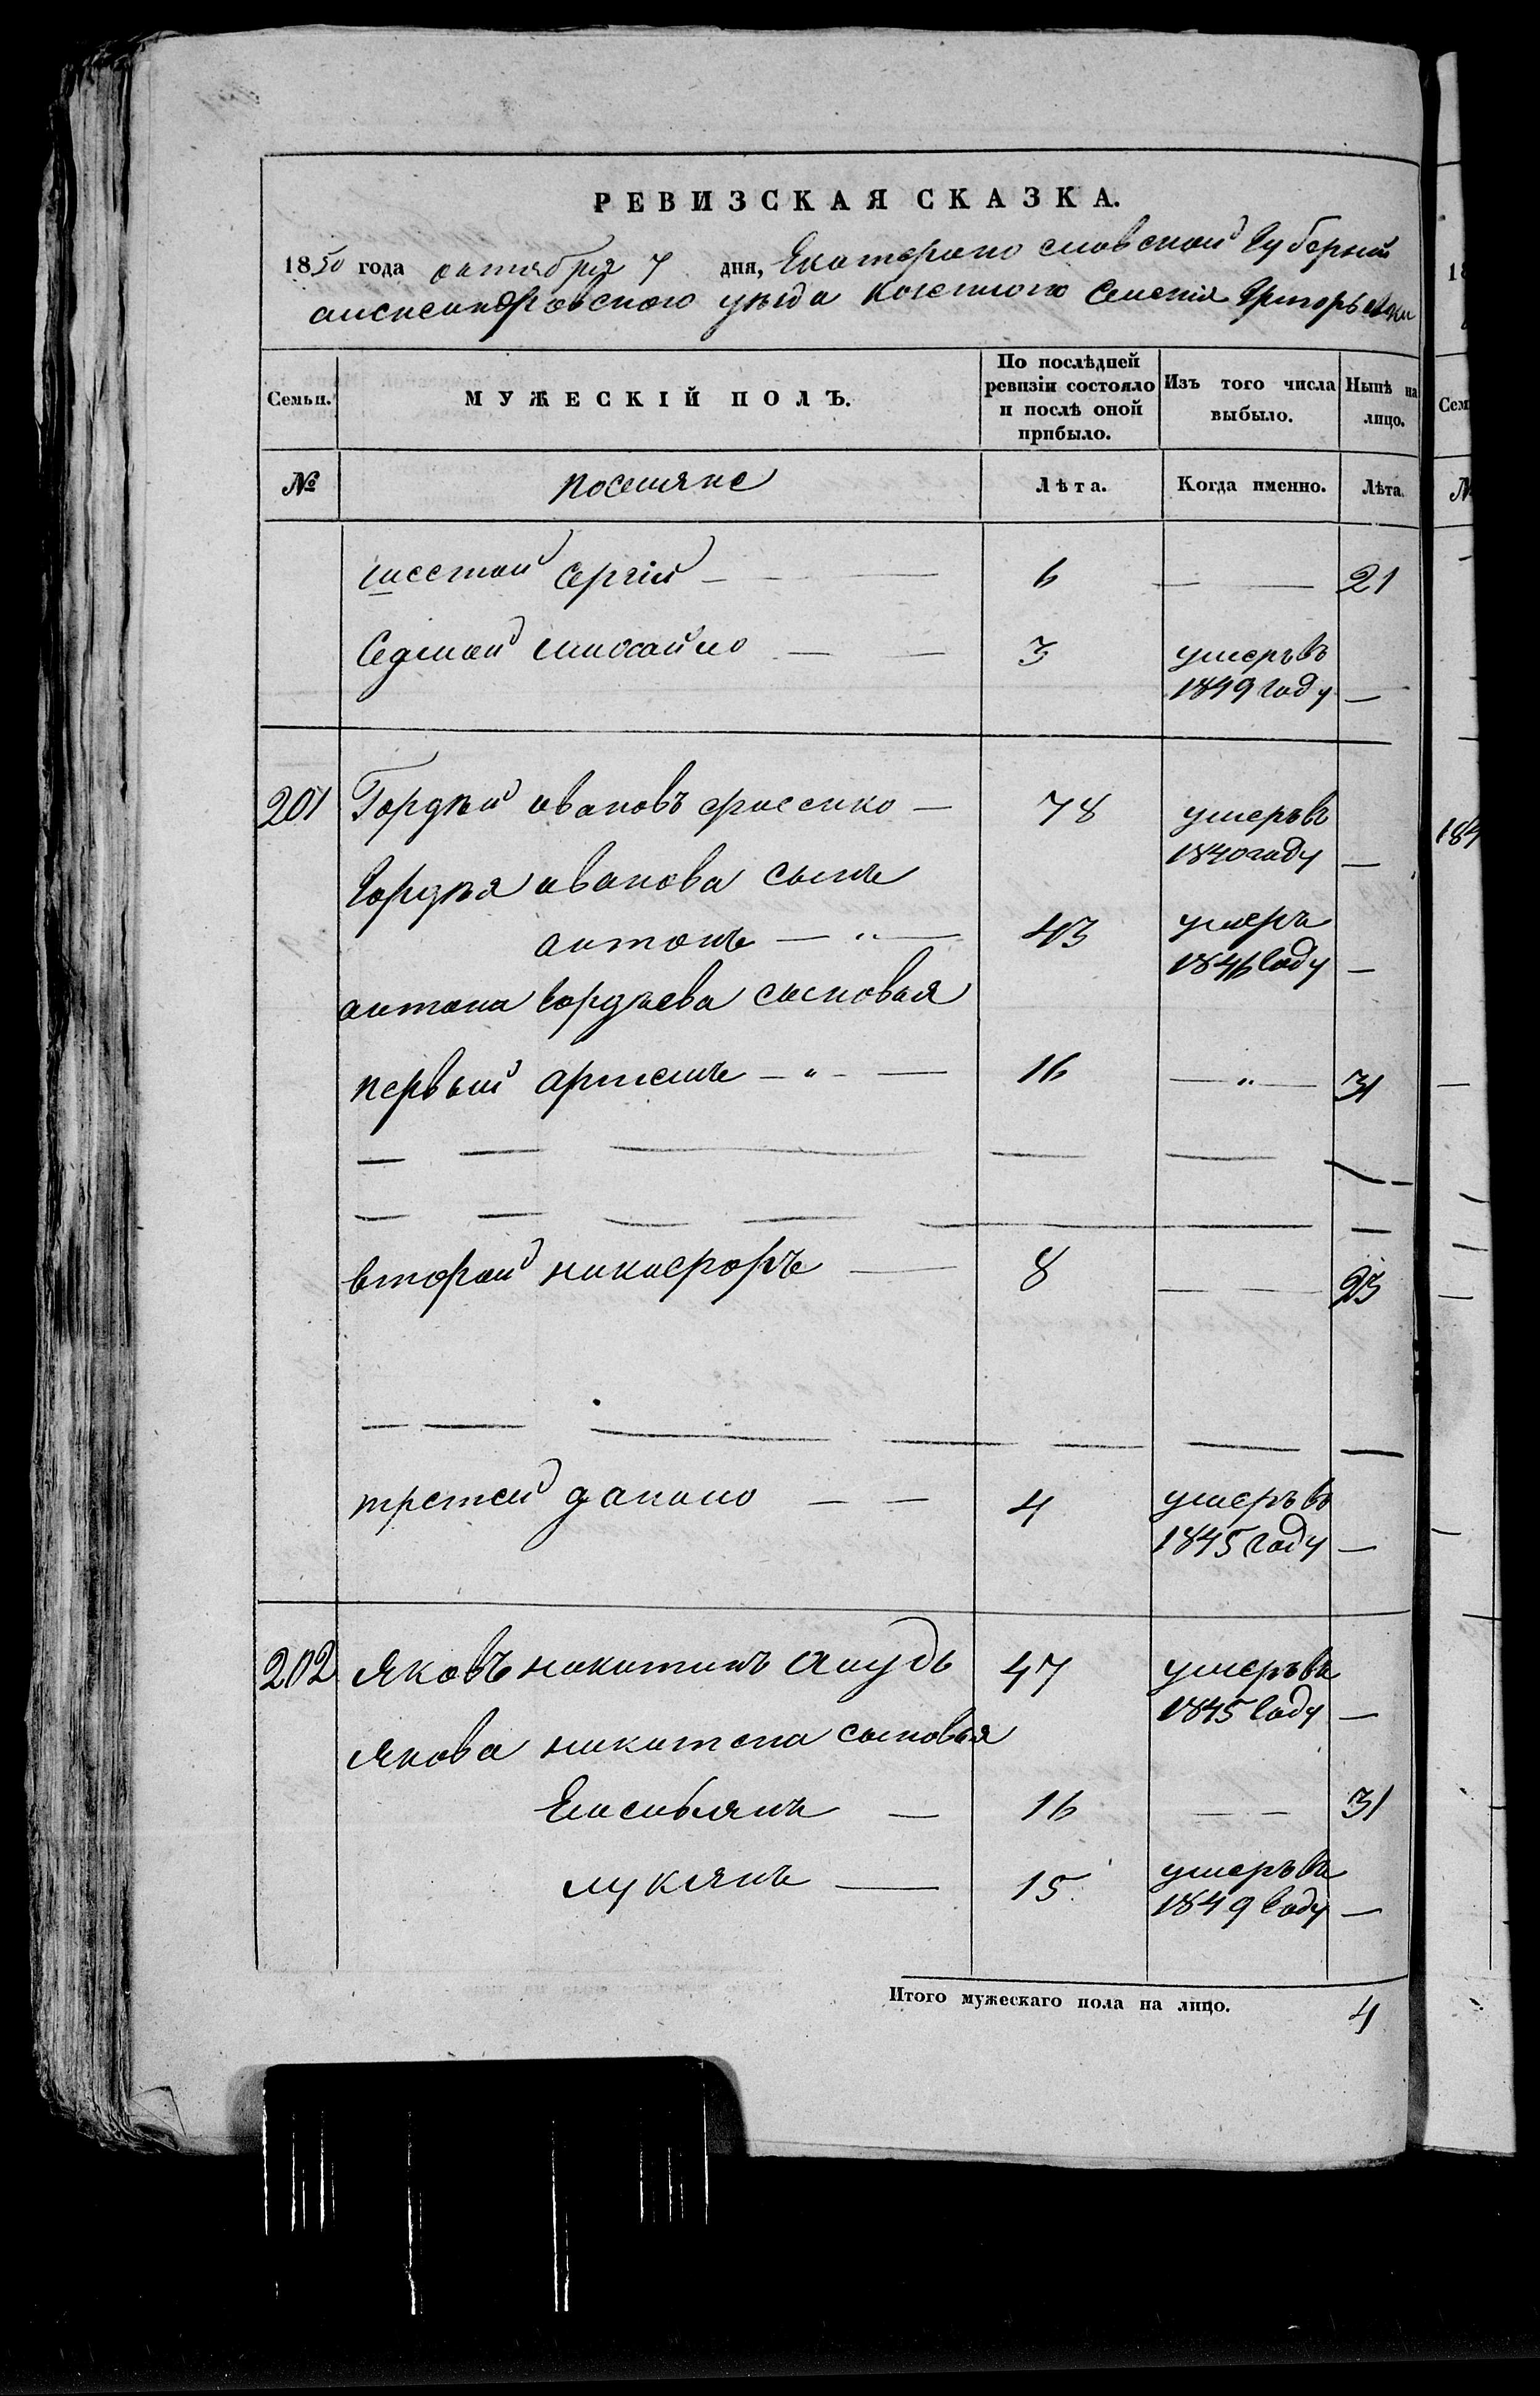 РЕВИЗСКАЯ СКАЗКА.
1850 года октября 7 дня, Екатеринославской Губернии
александровского уѣзда казенного Селенія Григорьевки
Семьи. МУЖЕСКІЙ ПОЛЪ. По послѣдней ревизіи состояло и послѣ оной прибыло. Изъ того числа выбыло. Нынѣ на лицо.
№ поселяне Лѣта. Когда именно. Лѣта.
шестой Сергій 6 — 21
Седмой михайло — 3 умеръ въ
1849 году —
201 Гордѣй ивановъ — 78 умеръ въ
1840 году —
Гордѣя иванова сынъ
антонъ — " — 43 умеръ
1846 году —
антона Гордѣева сыновья
первый артемъ — " — 16 — " — 31
второй никифоръ — 8 — 23
третей данило — 4 умеръ въ
1845 году —
202 Яковъ никитинъ 47 умеръ въ
1845 году —
Якова никитина сыновья
Емельянъ — 16 — 31
лукянъ — 15 умеръ въ
1849 году —
Итого мужескаго пола на лицо. 4